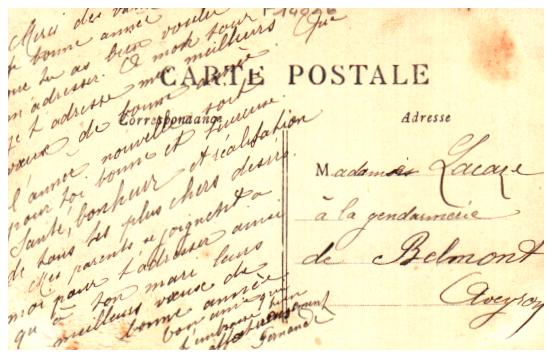 F 14026
CARTE POSTALE
Correspondance
Adresse
Merci des vœux
de bonne année
que tu as bien voulu
m'adresser. A mon tour
je t'adresse mes meilleurs
vœux de bonne année. Que
l'année nouvelle soit
pour toi bonne et heureuse.
Santé, bonheur et réalisation
de tous tes plus chers désirs.
Mes parents se joignent à
moi pour t'adresser ainsi
qu'à ton mari leurs
meilleurs vœux de
bonne année
Ton amie qui
t'embrasse bien
affectueusement
Fernande
Madame Lacaze
à la gendarmerie
de Belmont
Aveyron